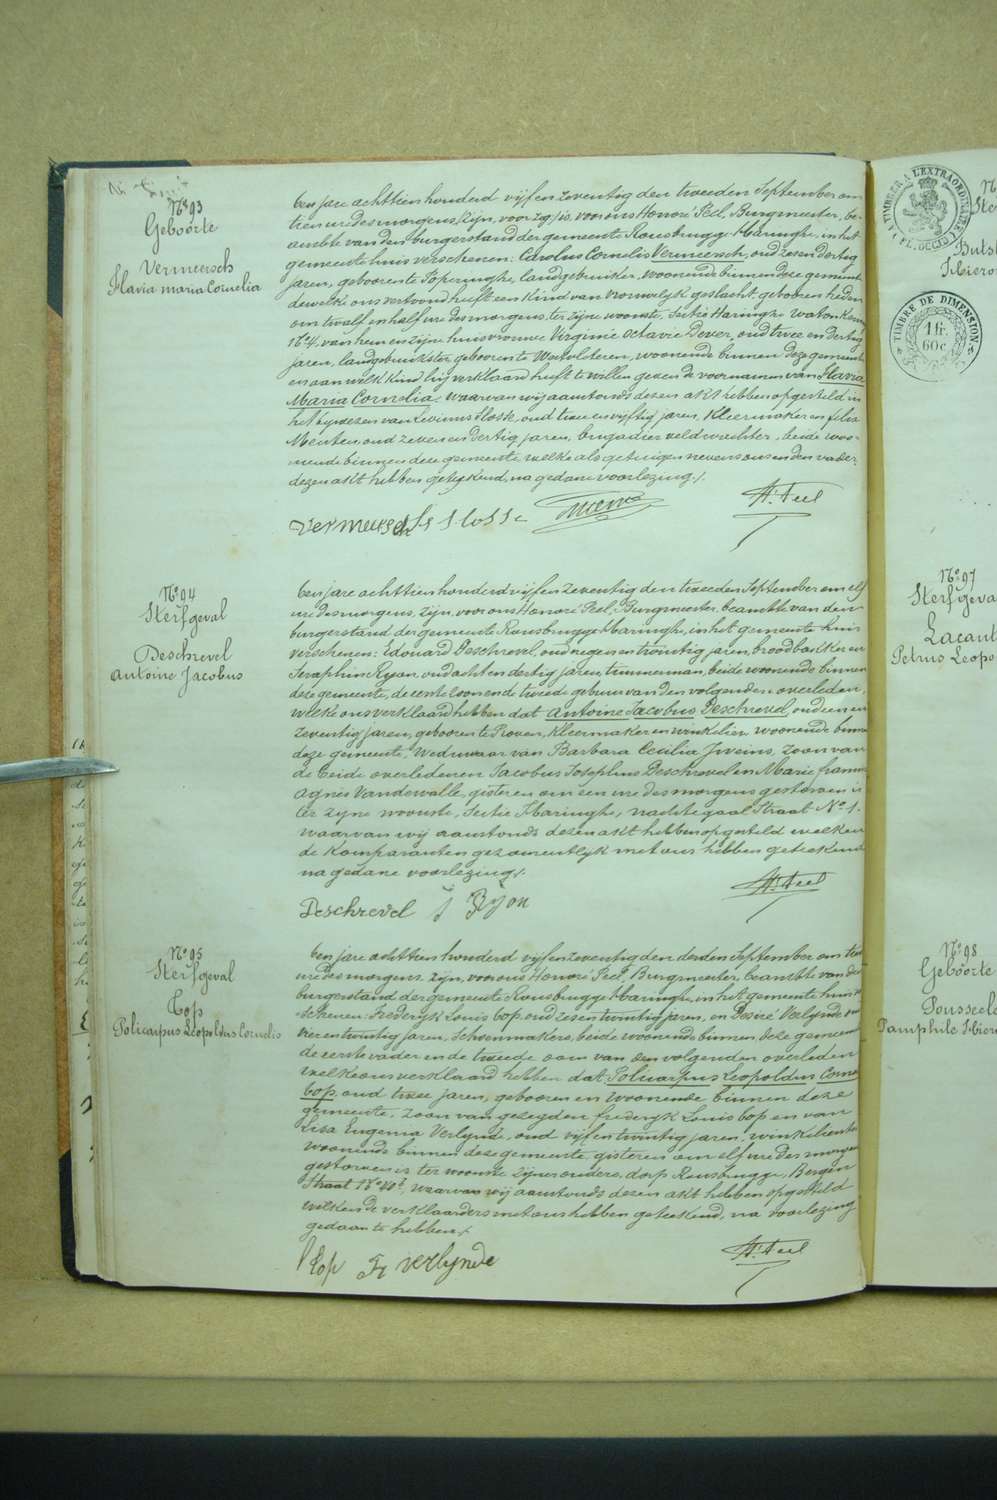 N° 93
Geboorte
Vermeersch
Flavia Maria Cornelia
ten jare achttien honderd vijf en zeventig den tweeden September om
tien ure des morgens, zijn, voor ons Honoré Peel, Burgmeester, be-
ambte van den burgerstand der gemeente Rousbrugge-Haringhe, in het
gemeente huis verschenen: Carolus Cornelis Vermeersch, oud zes en dertig
jaren, geboren te Poperinghe, landgebruiker, woonende binnen deze gemeente
dewelke ons vertoond heeft een kind van vrouwelijk geslacht, geboren heden
om twalf en half ure des morgens, ter zijne woonste, Sectie Haringhe
van hem en zijne huisvrouwe Virginie Octavie Dever, oud twee en dertig
jaren, landgebruikster, geboren te Westvleteren, woonende binnen deze gemeente
en aan welk kind hij verklaard heeft te willen geven de voornamen van Flavia
Maria Cornelia. Waarvan wij aanstonds dezen akt hebben opgesteld in
het bijwezen van Livinus Slosse, oud twee en vijftig jaren, Kleermaker en
oud zeven en dertig jaren, brigadier veldwachter, beide woo-
nende binnen deze gemeente welke als getuigen nevens ons en den vader
dezen akt hebben geteekend, na gedane voorlezing./.
Vermeersch L Slosse H. Peel
N° 94
Sterfgeval
Deschrevel
Antoine Jacobus
ten jare achttien honderd vijf en zeventig den tweeden September om elf
ure des morgens, zijn, voor ons Honoré Peel, Burgmeester, beambte van den
burgerstand der gemeente Rousbrugge-Haringhe, in het gemeente huis
verschenen: Edouard Deschrevel, oud negen en twintig jaren, broodbakker en
Seraphin Ryon oud acht en dertig jaren, timmerman, beide woonende binnen
deze gemeente, de eerste zoon en de tweede gebuur van den volgenden overleden,
welke ons verklaard hebben dat Antoine Jacobus Deschrevel, oud een en
zeventig jaren, geboren te Proven, Kleermaker en winkelier, woonende binnen
deze gemeente, Weduwaar van Barbara Cecilia Sweins, zoon van
de beide overledenen Jacobus Josephus Deschrevel en Marie
Agnès Vandewalle, gisteren om een ure des morgens gestorven is
ter zijne woonste, Sectie Haringhe, nachtegaal Straat N° 1.
waarvan wij aanstonds dezen akt hebben opgesteld welken
de Komparanten gezamentlijk met ons hebben geteekend
na gedane voorlezing/.
Deschrevel S Ryon H. Peel
N° 95
Sterfgeval
Cop
Policarpus Leopoldus Cornelis
ten jare achttien honderd vijf en zeventig den derden September om tien
ure des morgens, zijn, voor ons Honoré Peel, Burgmeester, beambte van den
burgerstand der gemeente Rousbrugge-Haringhe, in het gemeente huis ver-
schenen: Frederijk Louis Cop, oud zes en twintig jaren, en Desiré Verlynde oud
vier en twintig jaren, Schoenmakers, beide woonende binnen deze gemeente
de eerste vader en de tweede oom van den volgenden overleden
welke ons verklaard hebben dat: Policarpus Leopoldus Cornelis
Cop, oud twee jaren, geboren en woonende binnen deze
gemeente, zoon van gezegden frederijk Louis Cop en van
Lisa Eugenia Verlynde, oud vijf en twintig jaren, winkelierster
woonende binnen deze gemeente gisteren om elf ure des morgens
gestorven is ter woonste zijner ouders, dorp Rousbrugge, Bergen
Straat, waarvan wij aanstonds dezen akt hebben opgesteld
welken de verklaarders met ons hebben geteekend, na voorlezing
gedaan te hebben./.
Cop Verlynde H. Peel
TIMBRE A L'EXTRAORDINAIRE
TIMBRE DE DIMENSION
1 fr.
60 c.
N° 97
Sterfgeva
Lacant
Petrus Leopo
N° 98
Geboorte
Pousseele
Pamphile Hier